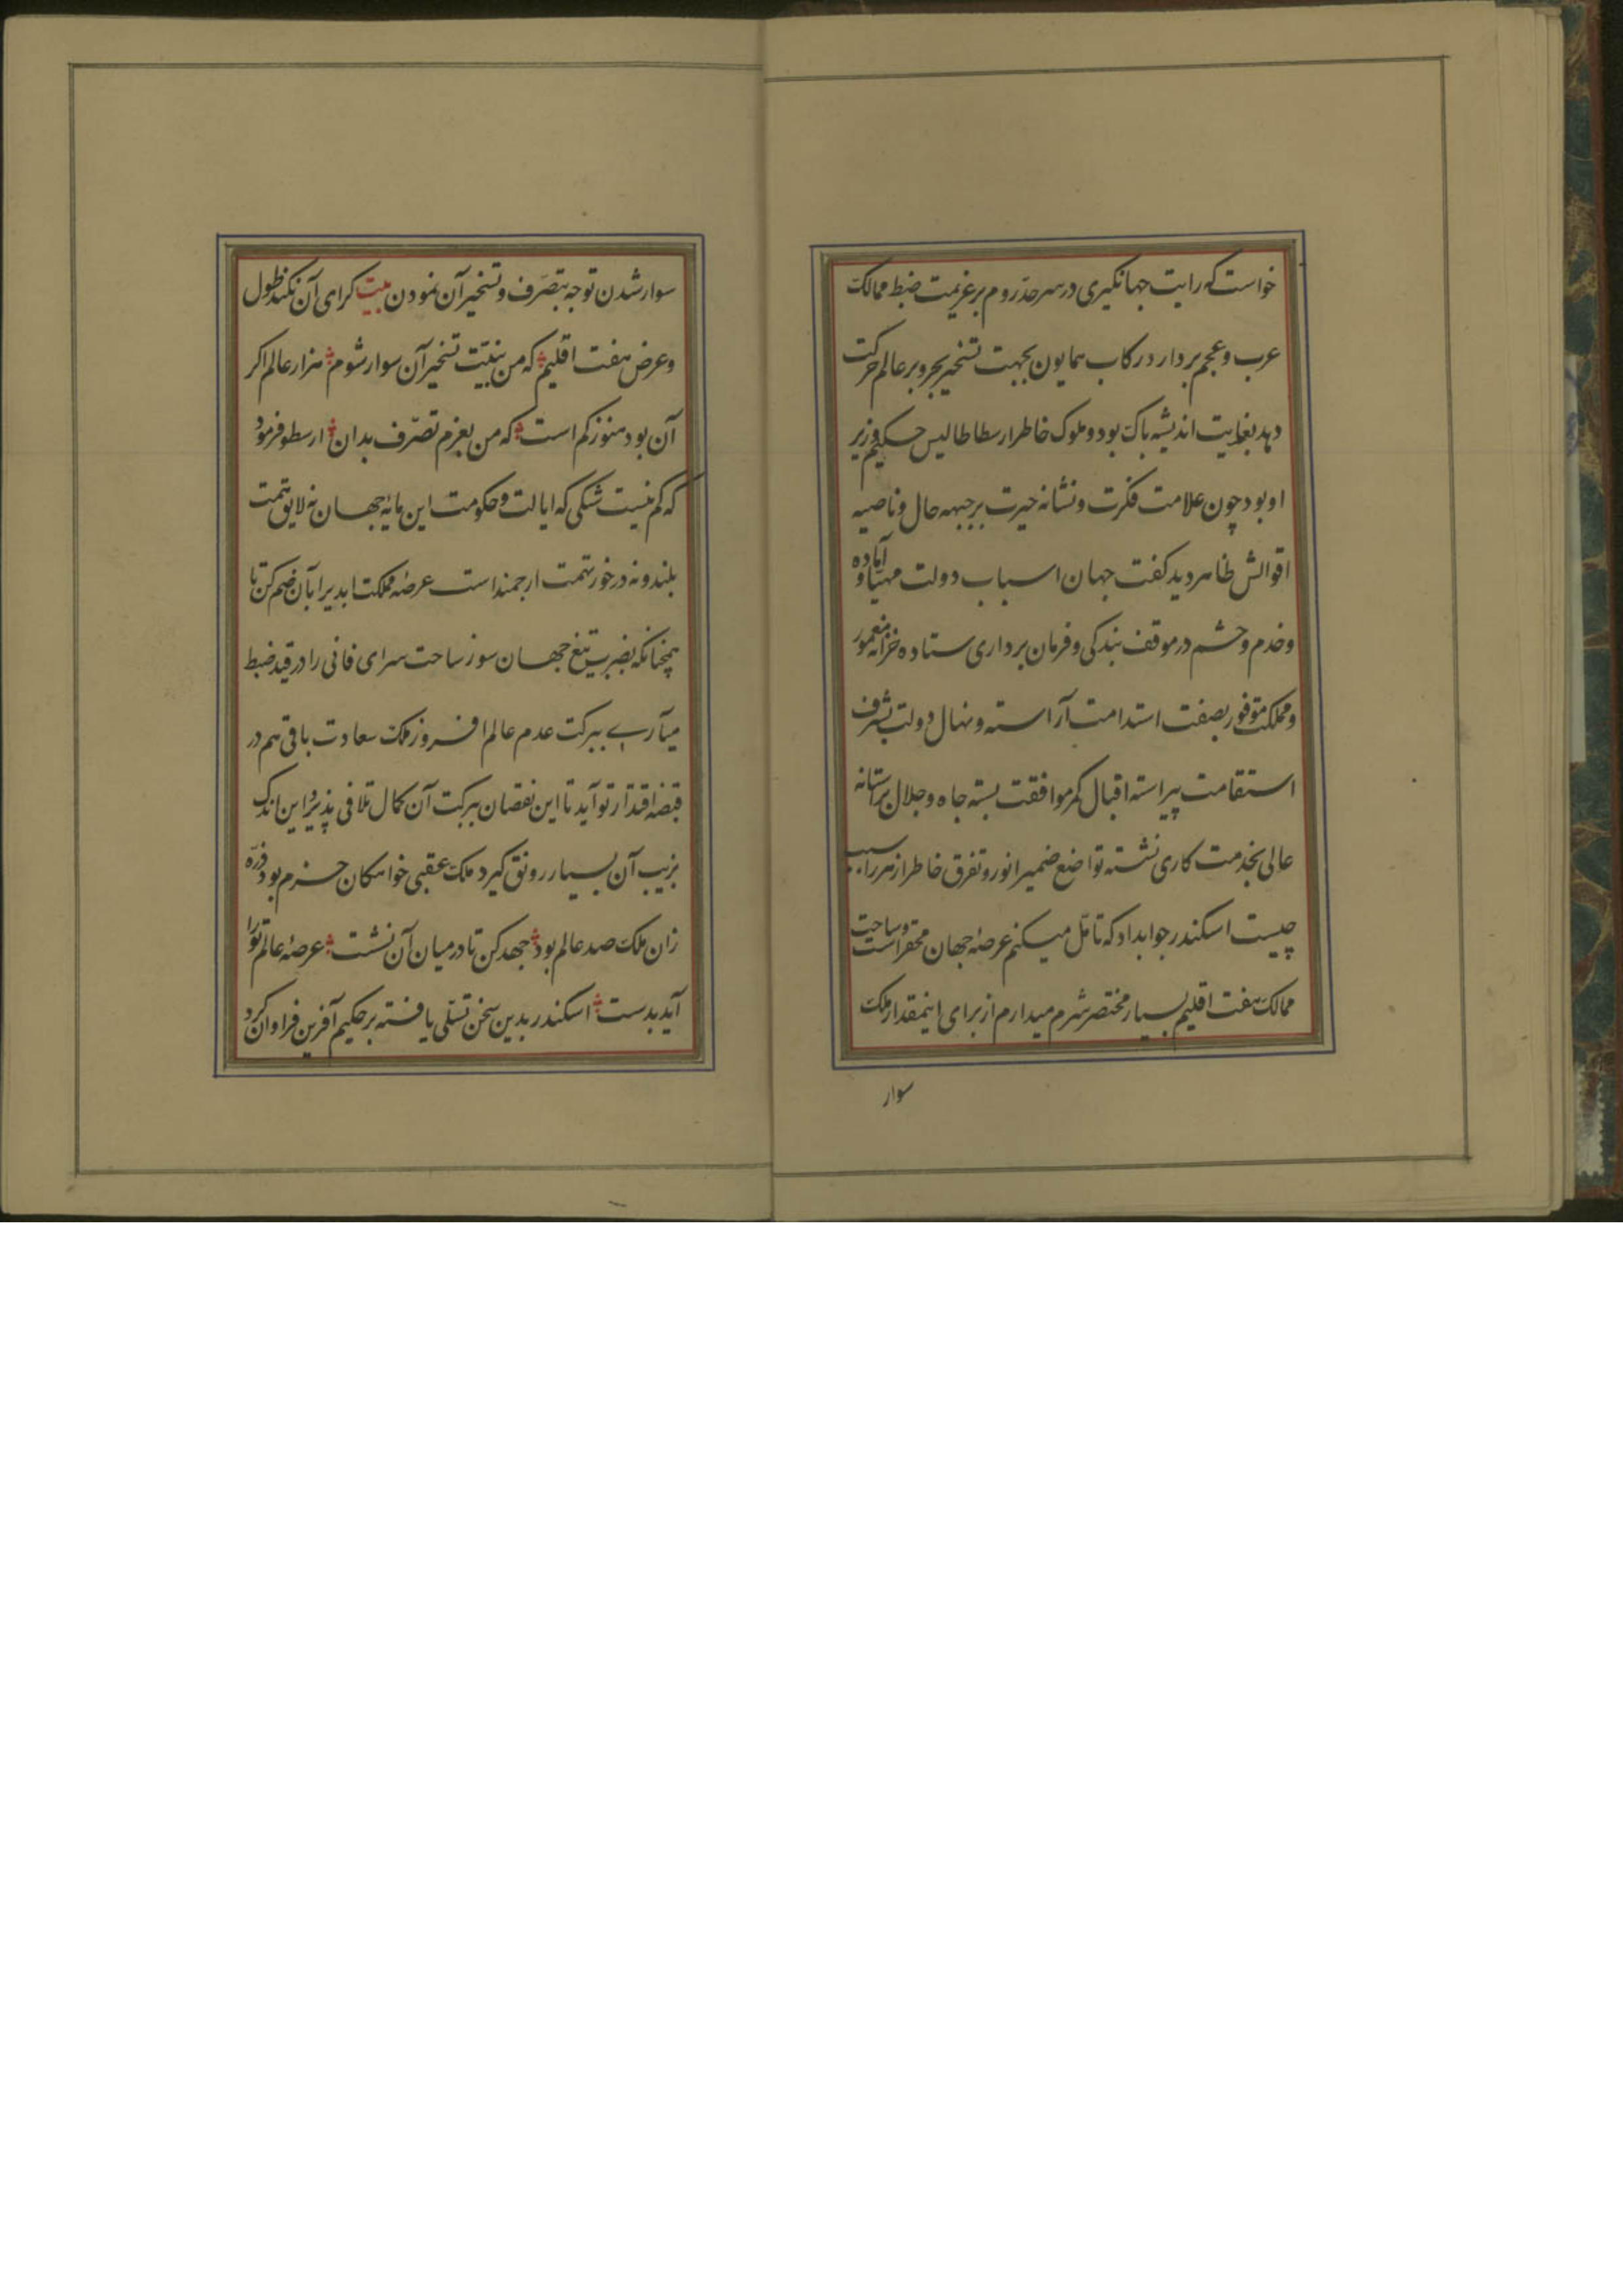 خواست که رایت جهانکیری در سرحد روم بر عزیمت ضبط ممالک
عرب و عجم بردارد در رکاب همایون بجهت تسخیر بحر و بر عالم حرکت
دهد بغایت اندیشه باک بود و ملوک خاطر ارسطاطالیس حکیم وزیر
او بود چون علامت فکرت و نشانه حیرت بر جبهه حال و ناصیه
اقوالش ظاهر دید کفت جهان اسباب دولت مهیا و آماده
و خدم و حشم در موقف بندکی و فرمان برداری ستاده خزانه معمور
و مملکت موفور بصفت استدامت آراسته و نهال دولت بشرف
استقامت پیراسته اقبال کمر موافقت بسته جاه و جلال بر ستانه
عالی بخدمت کاری نشسته تواضع ضمیر انور و تفرق خاطر از هر را سبب
چیست اسکندر جواب داد که تامّل میکنم عرصهٔ جهان محقر است و ساحت
ممالک هفت اقلیم بسیار مختصر شرم میدارم از برای اینمقدار ملک
سوار
سوار شدن توجه بتصرّف و تسخیر آن نمودن بیت کرای آن نکند طول
و عرض هفت اقلیم که من بنیّت تسخیر آن سوار شوم هزار عالم اکر
آن بود هنوز کم است که من بعزم تصرّف بدان ارسطو فرمود
که کم نیست شکی که ایالت و حکومت این مایهٔ جهان نه لایق همت
بلند و نه در خور نهمت ارجمند است عرصهٔ مملکت ابدیرا بآن ضم کن تا
همچنانکه بضرب تیغ جهان سوز ساحت سرای فانی را در قید ضبط
میآری ببرکت عدم عالم افروز ملک سعادت باقی هم در
قبضه اقتدار تو آید تا این نقصان ببرکت آن کمال تلافی پذیرد و این اندک
بزیب آن بسیار رونق کیرد ملک عقبی خواه کان خرم بود ذرّه
زان ملک صد عالم بود جهد کن تا در میان آن نشست عرصهٔ عالم تو را
آید بدست اسکندر بدین سخن تسلّی یافته بر حکیم آفرین فراوان کرد